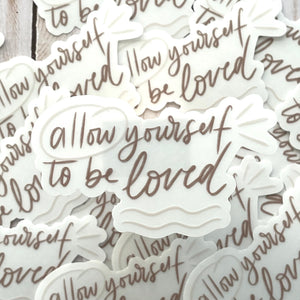 allow yourself
to be loved